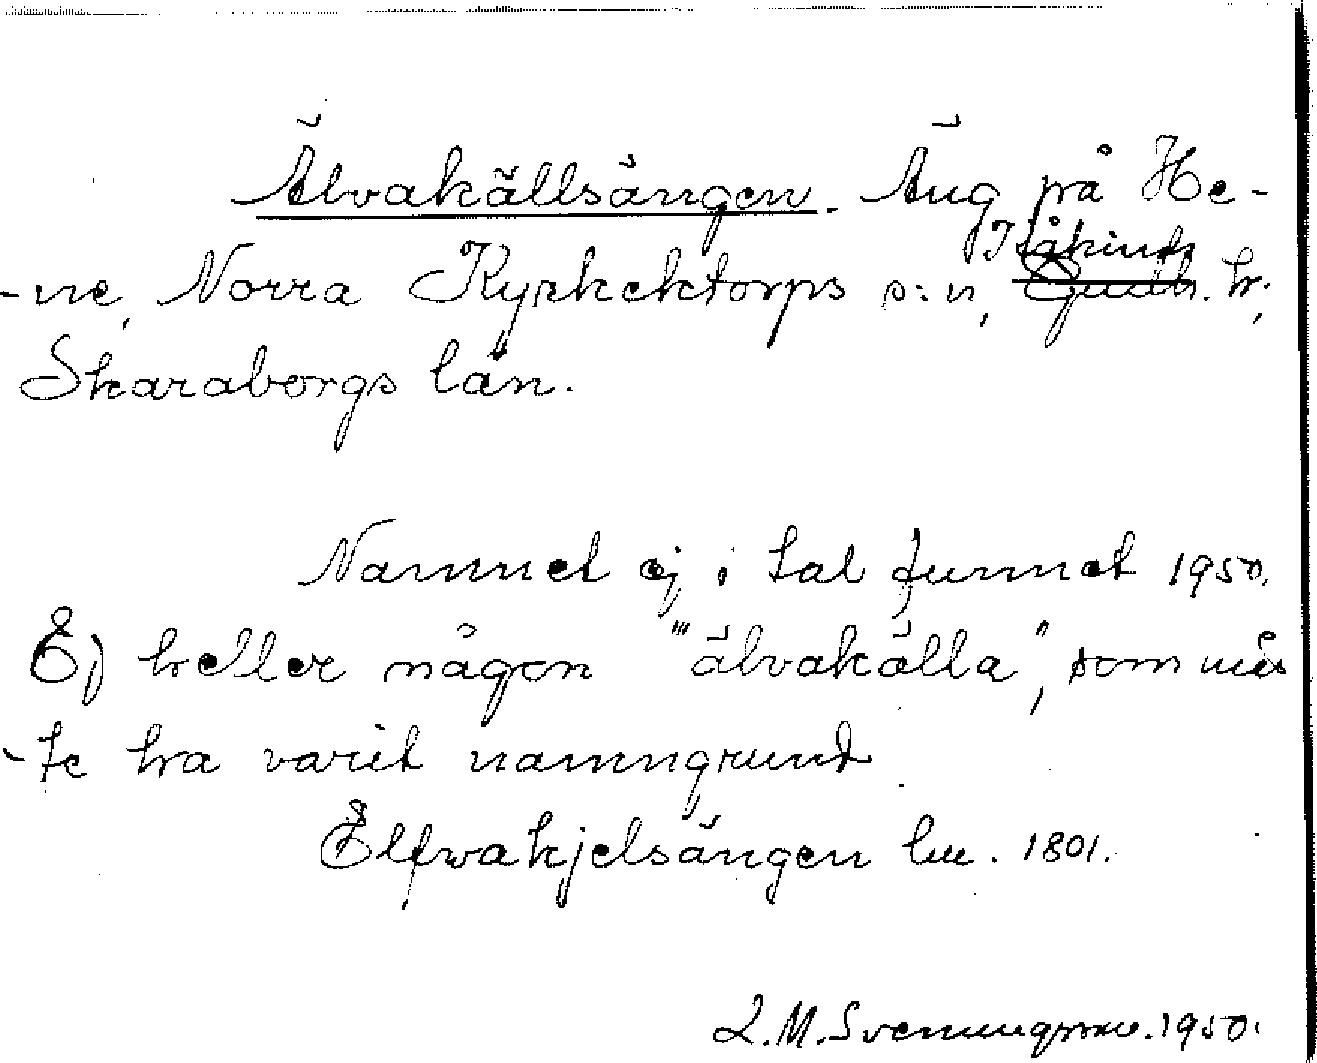 Älvakällsängen. Äng på He-
-ne, Norra Kyrkeketorps s:n, Kåkinds h.,
Skaraborgs län.
Namnet ej i tal funnet 1950.
Ej heller någon "älvakälla", som mås
-te ha varit namngrund
Elfvakjelsängen lm. 1801.
L.M. Svenungsson. 1950.